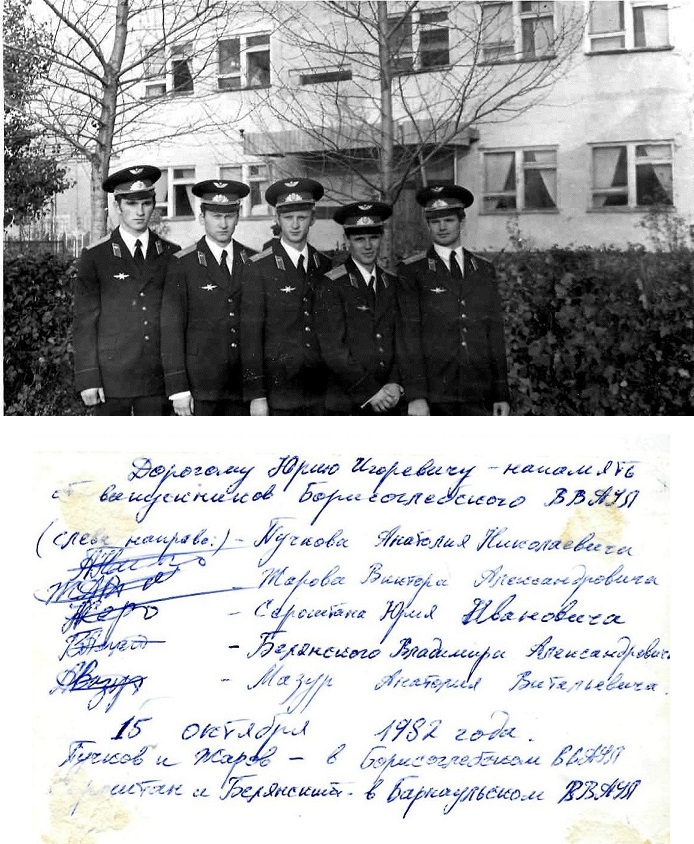 Дорогому Юрию Игоревичу - на память
от выпускников Борисоглебского ВВАУЛ
(слева направо:) - Пучкова Анатолия Николаевича
- Жарова Виктора Александровича
- Сероштана Юрия Ивановича
- Белянского Владимира Александровича
- Мазур Анатолия Витальевича.
15 октября 1982 года.
Пучков и Жаров - в Борисоглебском ВВАУЛ
Сероштан и Белянский - в Барнаульском ВВАУЛ